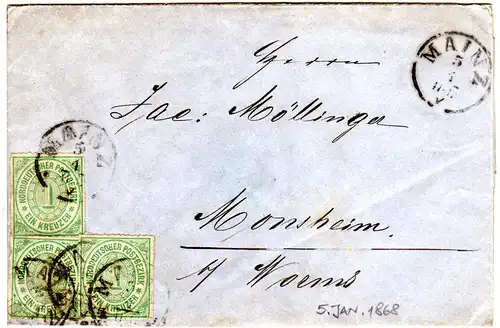 MAINZ
5
1
Herrn
Jac: Möllinger
MAINZ
5
1
NORDDEUTSCHER POSTBEZIRK
1
EIN KREUZER
Monsheim
NORDDEUTSCHER POSTBEZIRK
1
EIN KREUZER
b/ Worms
5. JAN. 1868